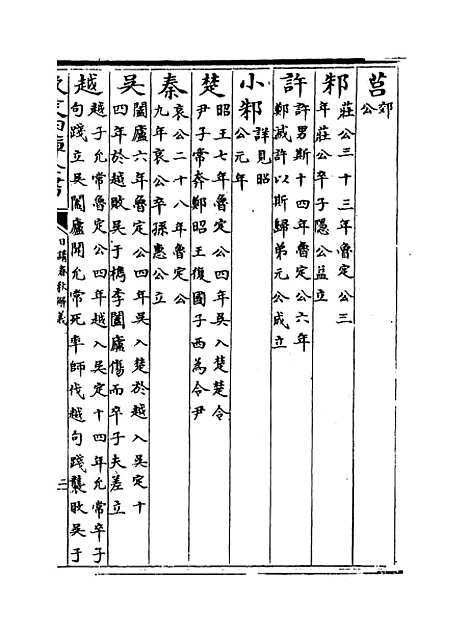 莒
郊
公
邾
莊公三十三年魯定公三
年莊公卒子隱公益立
許
許男斯十四年魯定公六年
鄭滅許以斯歸弟元公成立
小邾
詳見昭
公元年
楚
昭王七年魯定公四年吳入楚楚令
尹子常奔鄭昭王復國子西為令尹
秦
哀公二十八年魯定公
九年哀公卒孫惠公立
吳
闔廬六年魯定公四年吳入楚於越入吳定十
四年於越敗吳于檇李闔廬傷而卒子夫差立
越
越子允常魯定公四年越入吳定十四年允常卒子
句踐立吳闔廬聞允常死率師伐越句踐襲敗吳于
日講春秋解義
二